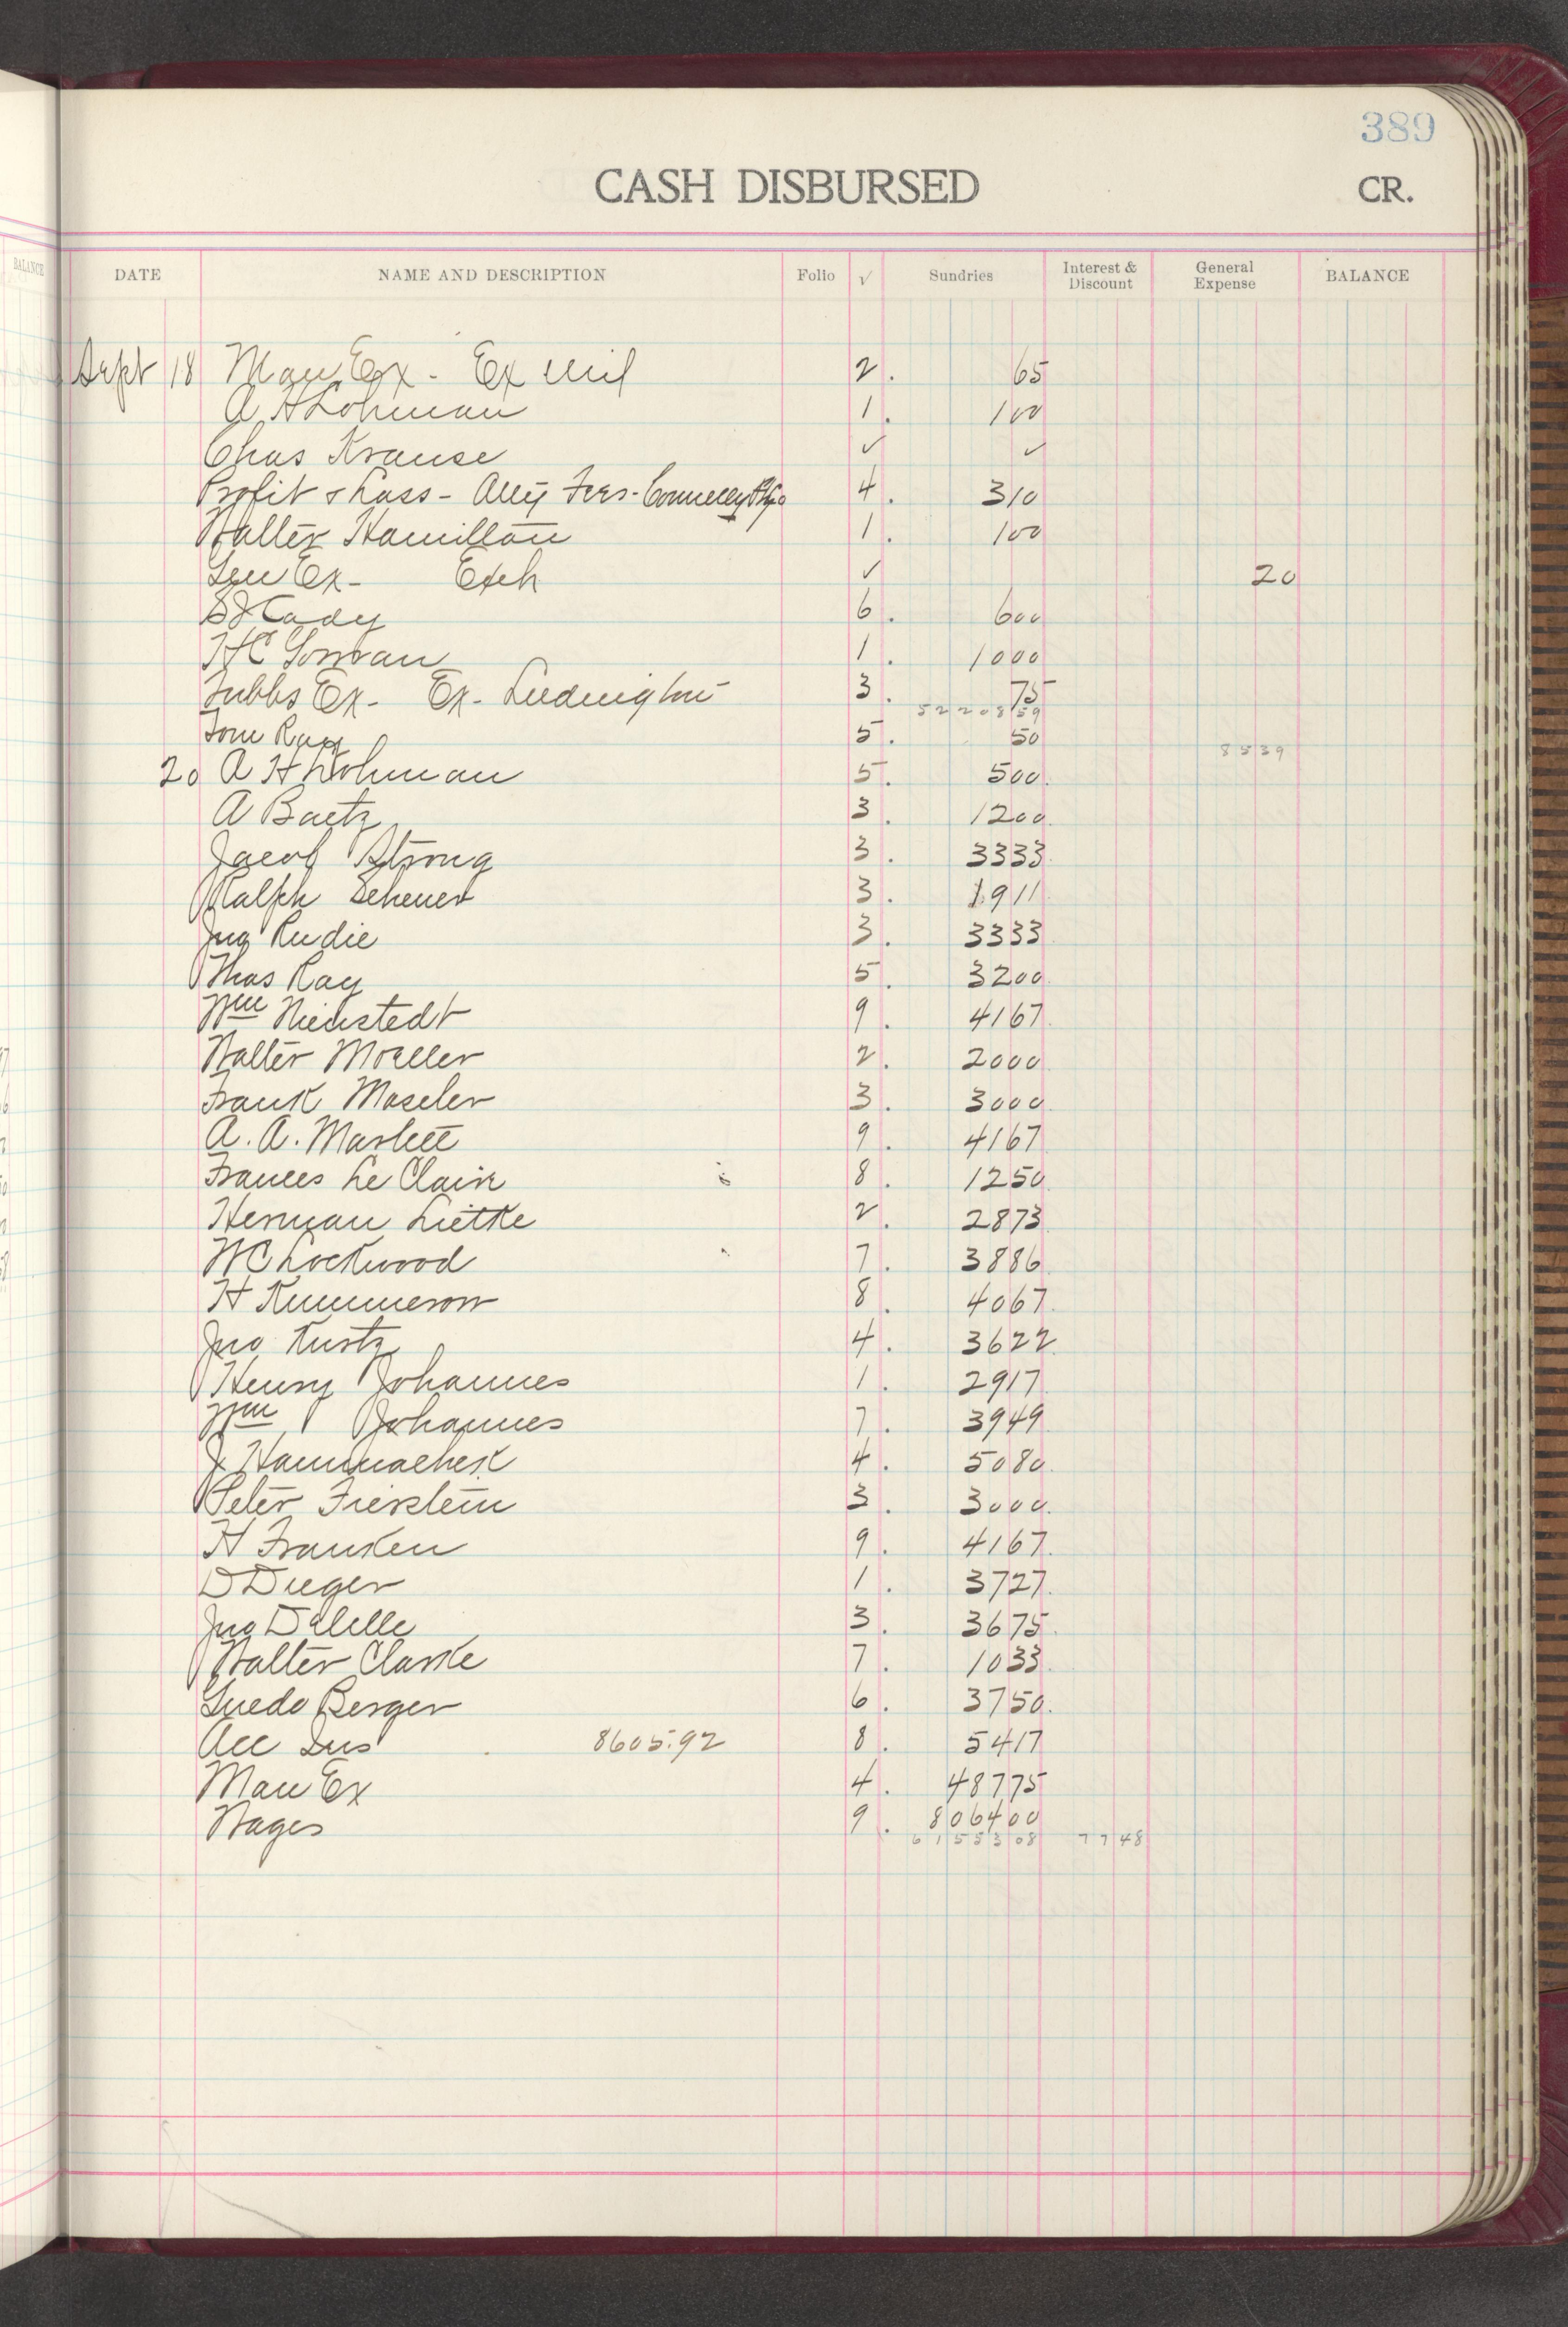 389
CASH DISBURSED CR.
BALANCE DATE NAME AND DESCRIPTION Folio √ Sundries Interest & Discount General Expense BALANCE
Sept 18 Man Ex - Ex Mil 2 65
A H Lohman 1 100
Chas Krause ✓ ✓
Profit & Loss - Atty Fees - Connelly 4 310
Walter Hamilton 1 100
Gen Ex - Exch ✓ 20
S J Cady 6 600
H C Gorman 1 1000
Tubbs Ex - Ex - Ludington 3 75
5220859
Tom Ray 5 50
8539
20 A H Lohman 5 500
A Baetz 3 1200
Jacob Strong 3 3333
Ralph Scheuer 3 1911
Jno Rudie 3 3333
Thos Ray 5 3200
Wm Nienstedt 9 4167
Walter Moeller 2 2000
Frank Maseler 3 3000
A. A. Maslett 9 4167
Frances Le Clair 8 1250
Herman Lietke 2 2873
W C Lockwood 7 3886
H Kummerow 8 4067
Jno Kustz 4 3622
Henry Johannes 1 2917
Wm Johannes 7 3949
J Hammachek 4 5080
Peter Fierstein 3 3000
H Franken 9 4167
D Dueger 1 3727
Jno Delille 3 3675
Walter Clarke 7 1033
Guedo Berger 6 3750
Acc Ins 8605.92 8 5417
Man Ex 4 48775
Wages 9 806400
6155308 7748